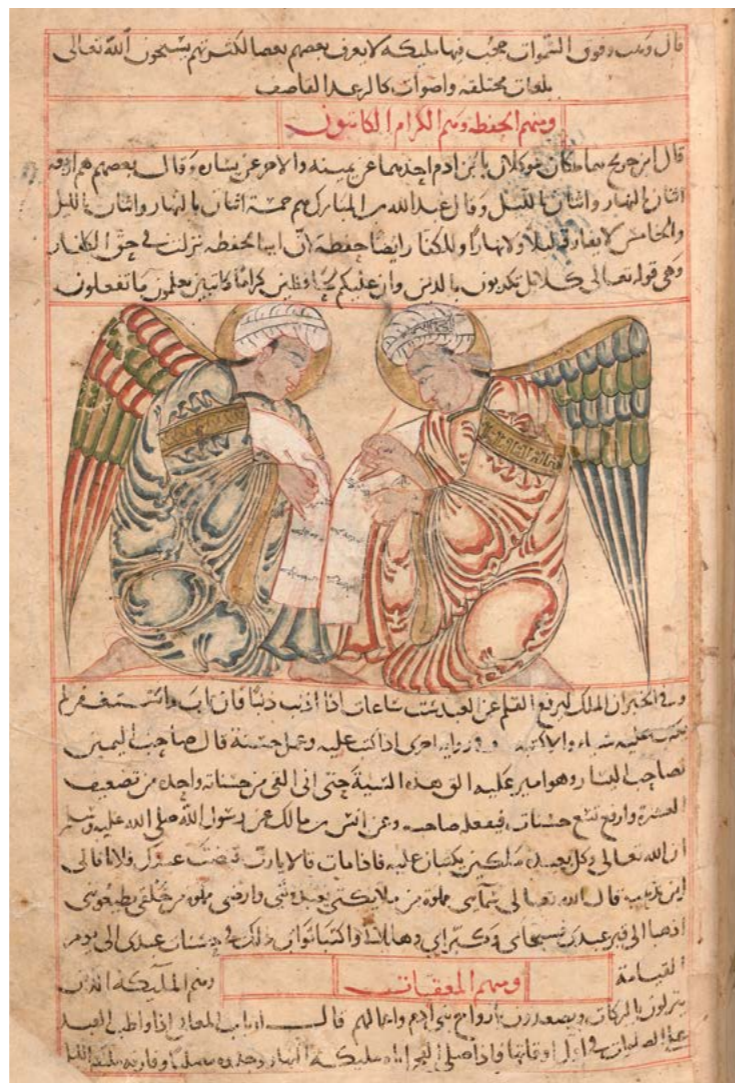 قال وهب وفوق السموات حجب فيها مليكه لا يعرف بعضهم بعضا لكثرتهم يسبحون الله تعالى
بلغات مختلفه واصوات كالرعد القاصف
ومنهم الحفظه وهم الكرام الكاتبون
قال ابن جريج هما ملكان موكلان بابن ادم احدهما عن يمينه والاخر عن يساره وقال بعضهم هم اربعه
اثنان بالنهار واثنان بالليل وقال عبد الله بن المبارك هم خمسة اثنان بالنهار واثنان بالليل
والخامس لا يفارقه ليلا ولا نهارا وللكفار ايضا حفظة لان اية الحفظه نزلت في حق الكفار
وهي قوله تعالى كلا بل تكذبون بالدين وان عليكم لحافظين كراما كاتبين يعلمون ما تفعلون
وفي الخبر ان الملك ليرفع القلم عن العبد ست ساعات اذا اذنب ذنبا فان تاب واستغفر لم
يكتب عليه شياء والا كتبه وفي روايه اخرى اذا كتب عليه وعمل حسنة قال صاحب اليمين
لصاحب اليسار وهو امير عليه الق هذه السيية حتى القى من حسناته واحده من تضعيف
العشرة وارفع تسع حسنات فيفعل صاحبه وعن انس بن مالك عن رسول الله صلى الله عليه وسلم
ان الله تعالى وكل بعبده ملكين يكتبان عليه فاذا مات قالا يا رب قبضت عبدك فلانا فالى
اين نذهب قال الله تعالى سمآي مملوة من ملايكتي يعبدونني وارضي مملوة من خلقي يطيعونني
اذهبا الى قبر عبدي فسبحاني وكبراني وهللاني واكتبا ثواب ذلك في حسنات عبدي الى يوم
القيامة
ومنهم المعقبات
ومنهم الملآيكه الذين
ينزلون بالبركات ويصعدون بارواح بني ادم واعمالهم قال اذا واظب العبد
على الصلوات في اول اوقاتها فاذا صلى الفجر مليكة النهار